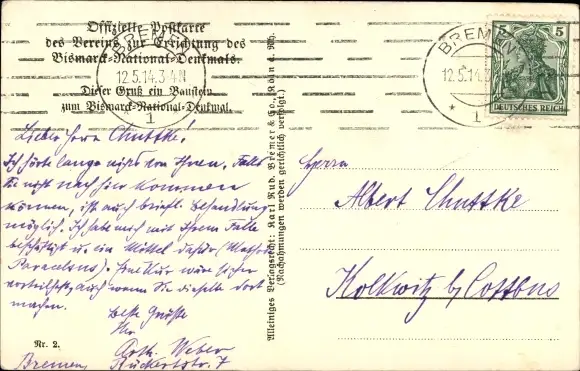 Offizielle Postkarte
des Vereins zur Errichtung des
Bismarck-National-Denkmals.
Dieser Gruß ein Baustein
zum Bismarck-National-Denkmal.
BREMEN
12.5.14.3-4N
* 1
BREMEN
12.5.14.3
* 1
5 5
DEUTSCHES REICH
Lieber Herr Chuttke!
Ich hörte lange nichts von Ihnen. Falls
Sie nicht nach hier kommen
können, ist auch briefl. Behandlung
möglich. Ich habe mich mit Ihrem Falle
beschäftigt u. ein Mittel dafür (Methode
Paracelsus). Eine Kur wäre sicher
vorteilhaft, auch wenn Sie dieselbe dort
machen.
Beste Grüße
Ihr
Arth. Weber
Bremen, Rückertstr. 7
Nr. 2.
Alleiniges Verlagsrecht: Karl Rud. Bremer & Co., Köln a. Rh.
(Nachahmungen werden gerichtlich verfolgt.)
Herrn
Albert Chuttke
Kolkwitz b/ Cottbus